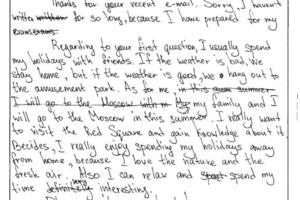 Thanks for your recent e-mail. Sorry, I haven't
written for so long, because I have prepared for my
Regarding to your first question, I usually spend
my holidays with friends. If the weather is bad, we
stay home, but if the weather is good, we hang out to
the amusement park. As for me, in this summer
I will go to the Moscow with m My my family and I
will go to the Moscow in this summer. I really want
to visit the Red Square and gain knowledge about it.
Becides, I really enjoy spending my holidays away
from home, because I love the nature and the
fresh air. Also I can relax and spend my
time very interesting.